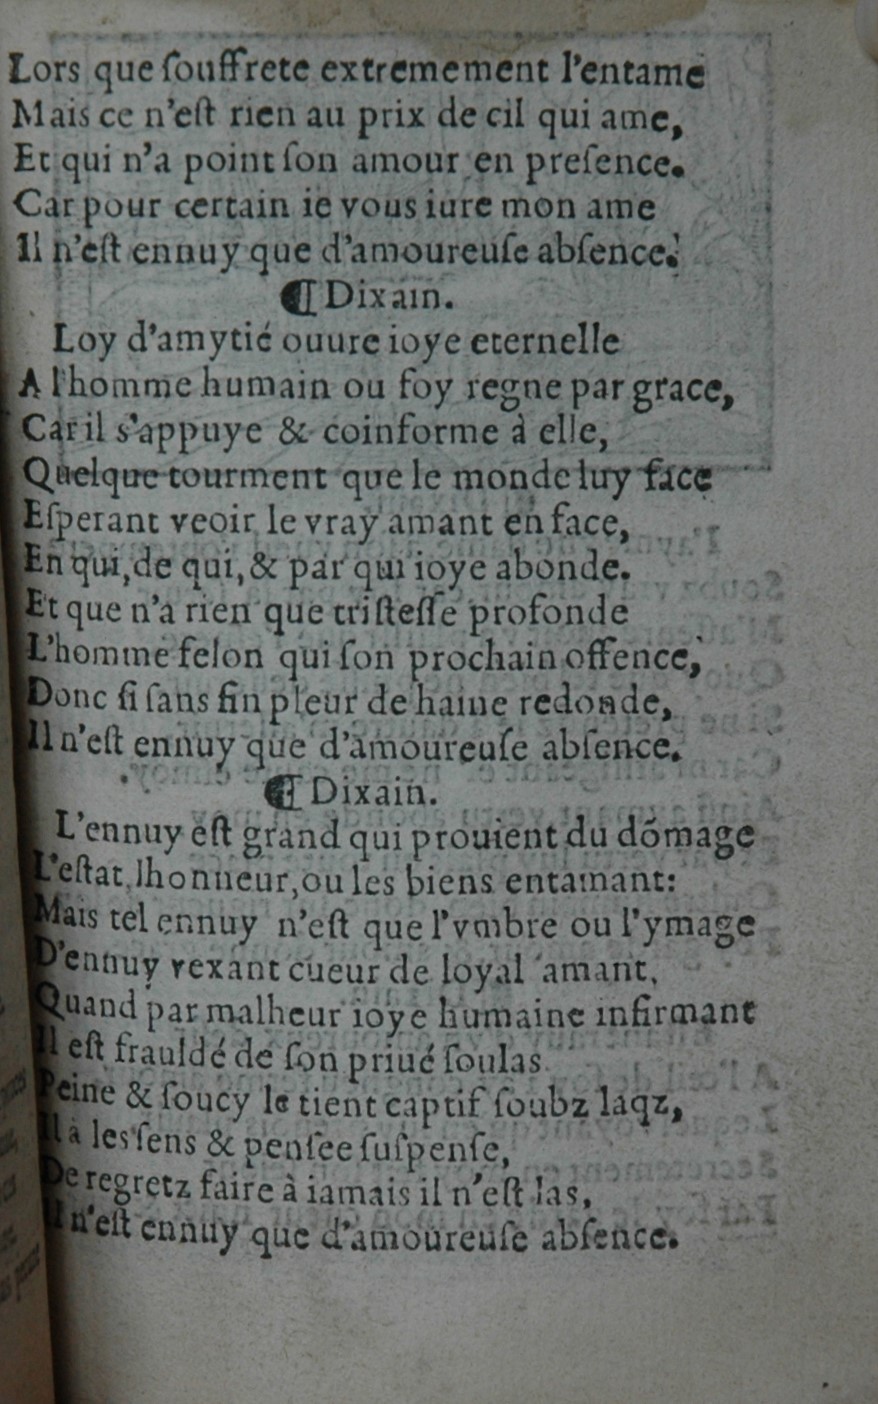 Lors que ſouffrete extremement l'entame
Mais ce n'eſt rien au prix de cil qui ame,
Et qui n'a point ſon amour en preſence.
Car pour certain ie vous iure mon ame
Il n'eſt ennuy que d'amoureuſe abſence.
¶ Dixain.
Loy d'amytié ouure ioye eternelle
A l'homme humain ou foy regne par grace,
Car il s'appuye & coinforme à elle,
Quelque tourment que le monde luy face
Eſperant veoir le vray amant en face,
En qui, de qui, & par qui ioye abonde.
Et que n'a rien que triſteſſe profonde
L'homme felon qui ſon prochain offence,
Donc ſi ſans fin pleur de haine redonde,
Il n'eſt ennuy que d'amoureuſe abſence.
¶ Dixain.
L'ennuy eſt grand qui prouient du dõmage
L'eſtat, lhonneur, ou les biens entamant:
Mais tel ennuy n'eſt que l'vmbre ou l'ymage
D'ennuy vexant cueur de loyal amant,
Quand par malheur ioye humaine infirmant
Il eſt frauldé de ſon priué ſoulas
Peine & ſoucy le tient captif ſoubz laqz,
Il a les ſens & penſee ſuſpenſe,
De regretz faire à iamais il n'eſt las,
Il n'eſt ennuy que d'amoureuſe abſence.